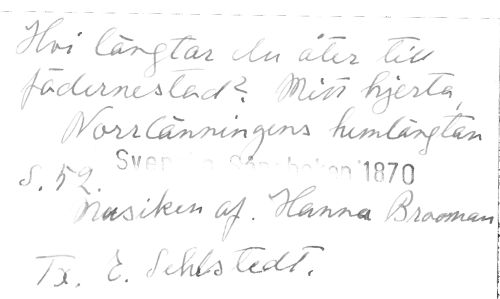 Hvi längtar du åter till
fädernestad? Mitt hjerta,
Norrlänningens hemlängtan
S. 52. Svenska Sångboken 1870
Musiken af. Hanna Brooman
Tx. E. Sehlstedt.